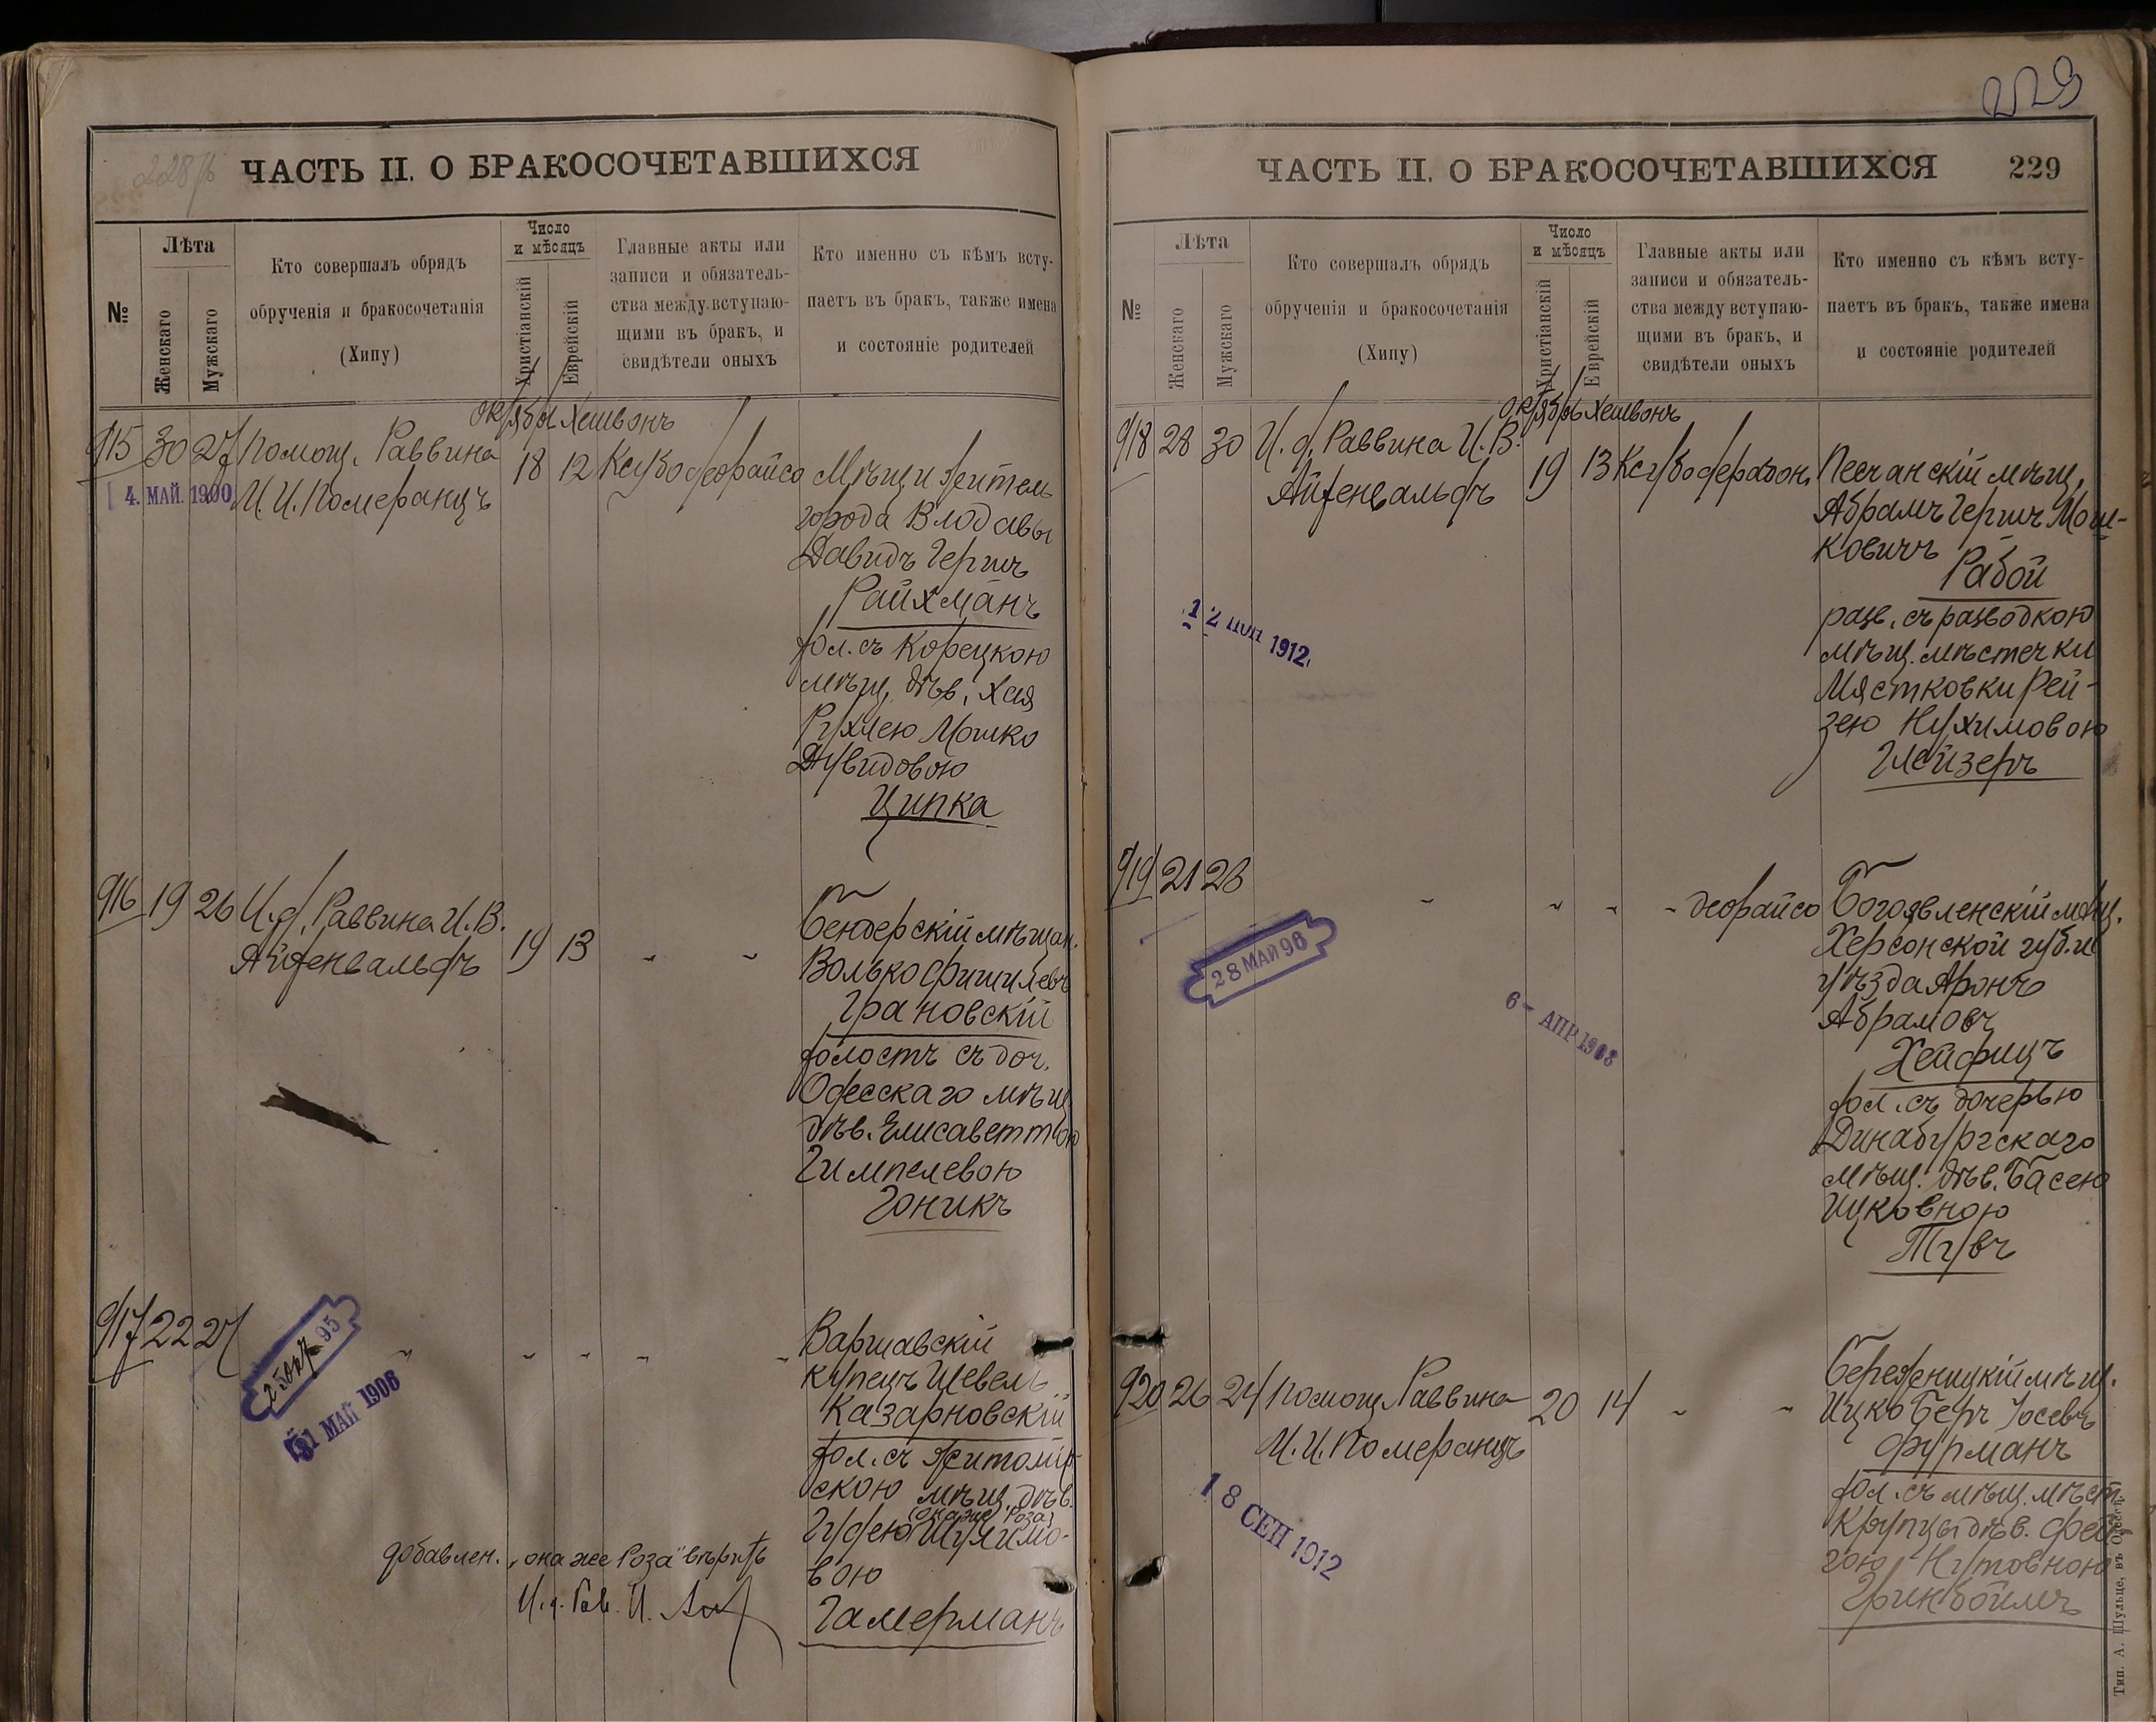 228/б
ЧАСТЬ II. О БРАКОСОЧЕТАВШИХСЯ
№
Лѣта
Женскаго
Мужскаго
Кто совершалъ обрядъ
обрученія и бракосочетанія
(Хипу)
Число
и мѣсяцъ
Христіанскій
Еврейскій
Главные акты или
записи и обязатель-
ства между вступаю-
щими въ бракъ, и
свидѣтели оныхъ
Кто именно съ кѣмъ всту-
паетъ въ бракъ, также имена
и состояніе родителей
октябрь Хешвонъ
915 30 27 Помощ. Раввина
И. И. Померанцъ
18 12 Ксубо деорайсо
4. МАЙ. 1900
Мѣщ. и житель
города Влодавы
Давидъ Гершъ
Райхманъ
хол. съ Корецкою
мѣщ. дѣв. Хая
Рухлею Мошко
Дувидовою
Ципка
916 19 26 И. д. Раввина И. В.
Айзенвальдъ
19 13 " "
Бендерскій мѣщан.
Волько Фишилевъ
Грановскій
холостъ съ доч.
Одесскаго мѣщ.
дѣв. Елисаветтою
Гимпелевою
Гоникъ
917 22 27 " " " " "
95
31 МАЙ 1906
Варшавскій
купецъ Шевель
Казарновскій
хол. съ Житомір-
скою мѣщ. дѣв.
(она же Роза)
Шулимо-
вою
Гамерманъ
добавлен. „она же Роза" вѣрить
И. д. Рав. И.
229
ЧАСТЬ II. О БРАКОСОЧЕТАВШИХСЯ 229
№
Лѣта
Женскаго
Мужскаго
Кто совершалъ обрядъ
обрученія и бракосочетанія
(Хипу)
Число
и мѣсяцъ
Христіанскій
Еврейскій
Главные акты или
записи и обязатель-
ства между вступаю-
щими въ бракъ, и
свидѣтели оныхъ
Кто именно съ кѣмъ всту-
паетъ въ бракъ, также имена
и состояніе родителей
октябрь Хешвонъ
918 28 30 И. д. Раввина И. В.
Айзенвальдъ
19 13 Ксубо дерабон.
12 1912
Песчанскій мѣщ.
Абрамъ Гершъ Мош-
ковичъ
Рабой
разв. съ разводкою
мѣщ. мѣстечки
Мястковки Рей-
зею Нухимовою
Глейзеръ
919 21 28 " " " " деорайсо
28 МАЙ 96
6- АПР 1908
Богоявленскій мѣщ.
Херсонской губ. и
уѣзда Аронъ
Абрамовъ
Хейфицъ
хол. съ дочерью
Динабургскаго
мѣщ. дѣв. Басею
Ицковною
Тувъ
920 26 24 Помощ. Раввина
И. И. Померанцъ
20 14 " "
18 СЕН 1912
Бережницкій мѣщ.
Ицко Беръ Іосевъ
Фурманъ
хол. съ мѣщ. мѣст.
Крупцы дѣв. Фей-
гою Нутовною
Гринбоймъ
Тип. А. Шульце, въ Одессѣ.